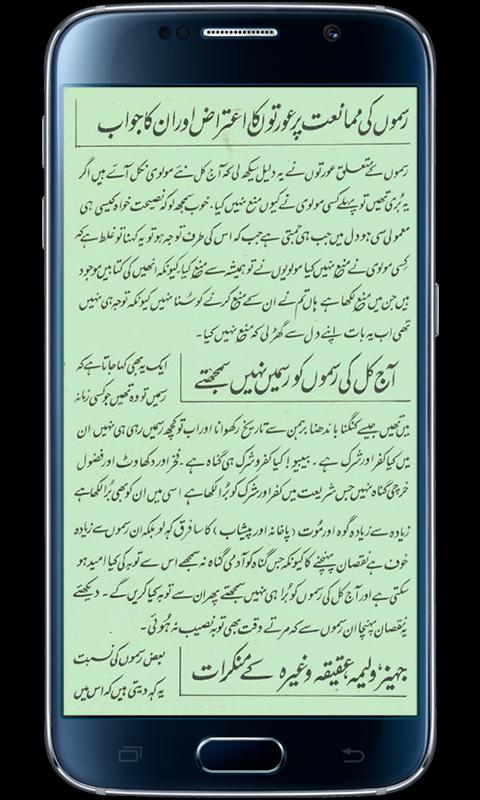 رسموں کی ممانعت پر عورتوں کا اعتراض اور ان کا جواب
رسموں کے متعلق عورتوں نے یہ دلیل سیکھ لی کہ آج کل نئے مولوی نکل آئے ہیں اگر
یہ بُری تھیں تو پہلے کسی مولوی نے کیوں منع نہیں کیا۔ خوب سمجھ لو کہ نصیحت خواہ کیسی ہی
معمولی سی ہو دل میں جب ہی جمتی ہے جب کہ اس کی طرف توجہ ہو تو یہ کہنا تو غلط ہے کہ
کسی مولوی نے منع نہیں کیا مولویوں نے تو ہمیشہ سے منع کیا۔ کیونکہ انھیں کی کتابیں موجود
ہیں جن میں منع لکھا ہے ہاں تم نے ان سے منع کرنے کو سُنا نہیں کیونکہ توجہ ہی نہیں
تھی اب یہ بات اپنے دل سے گھڑلی کہ منع نہیں کیا۔
آج کل کی رسموں کو رسمیں نہیں سمجھتے
ایک یہ بھی کہا جاتا ہے کہ
رسمیں تو وہ تھیں جو کسی زمانہ
میں تھیں جیسے کنگنا باندھنا برہمن سے تاریخ رکھوانا اور اب تو کچھ رسمیں رہی ہی نہیں ان
میں کیا کفر اور شرک ہے۔ بیبیو! کیا کفر و شرک ہی گناہ ہے۔ فخر اور دکھاوٹ اور فضول
خرچی گناہ نہیں جس شریعت میں کفر اور شرک کو بُرا لکھا ہے اسی میں ان کو بھی بُرا لکھا ہے
زیادہ سے زیادہ گوہ اور مُوت (پاخانہ اور پیشاب) کا سا فرق کہہ لو بلکہ ان رسموں سے زیادہ
خوف ہے نقصان پہنچنے کا کیونکہ جس گناہ کو آدمی گناہ نہ سمجھے اس سے توبہ کی کیا امید ہو
سکتی ہے اور آج کل کی رسموں کو بُرا ہی نہیں سمجھتے پھر ان سے توبہ کیا کریں گے۔ دیکھئے
یہ نقصان پہنچا ان رسموں سے کہ مرتے وقت بھی توبہ نصیب نہ ہوئی۔
جہیز، ولیمہ، عقیقہ وغیرہ کے منکرات
بعض رسموں کی نسبت
یہ کہہ دیتی ہیں کہ اس میں